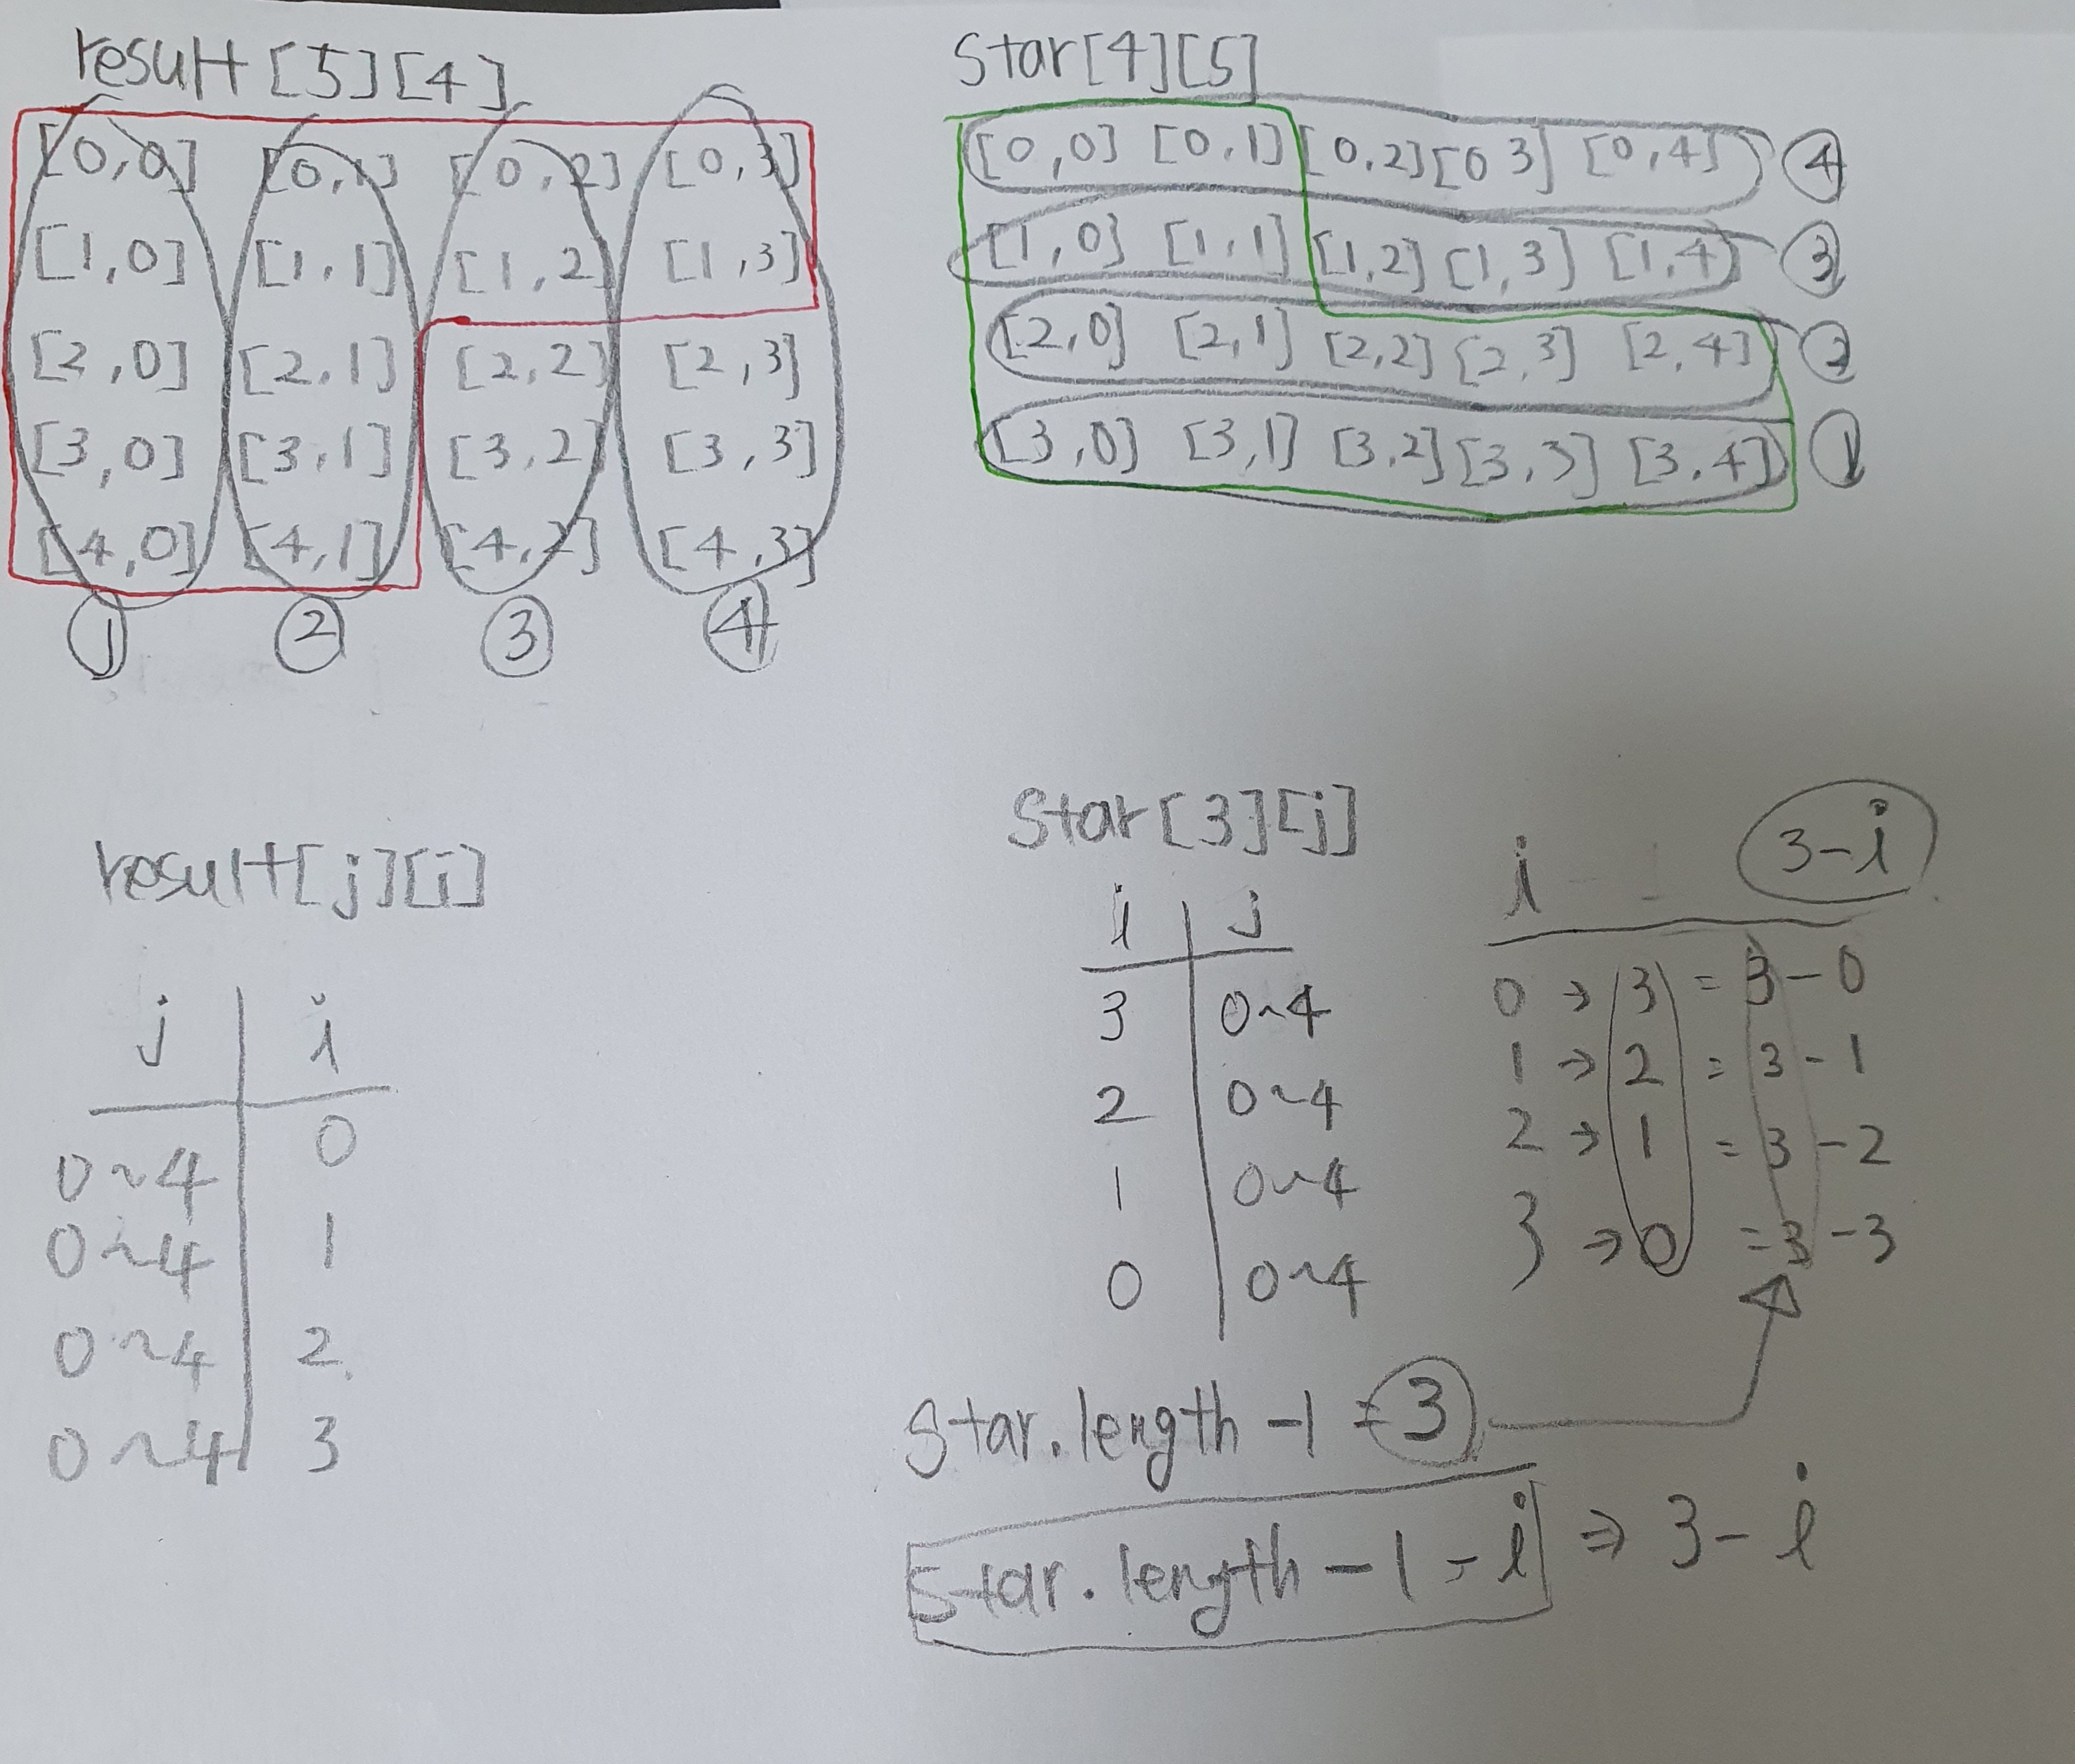 result[5][4]
[0,0] [0,1] [0,2] [0,3]
[1,0] [1,1] [1,2] [1,3]
[2,0] [2,1] [2,2] [2,3]
[3,0] [3,1] [3,2] [3,3]
[4,0] [4,1] [4,2] [4,3]
① ② ③ ④
Star[4][5]
[0,0] [0,1] [0,2] [0 3] [0,4] ④
[1,0] [1,1] [1,2] [1,3] [1,4] ③
[2,0] [2,1] [2,2] [2,3] [2,4] ②
[3,0] [3,1] [3,2] [3,3] [3,4] ①
result[j][i]
j i
0~4 0
0~4 1
0~4 2
0~4 3
Star[3][j]
i j
3 0~4
2 0~4
1 0~4
0 0~4
i 3-i
0 → 3 = 3-0
1 → 2 = 3-1
2 → 1 = 3-2
3 → 0 = 3-3
Star.length -1 = 3
Star.length -1 - i ⇒ 3-i